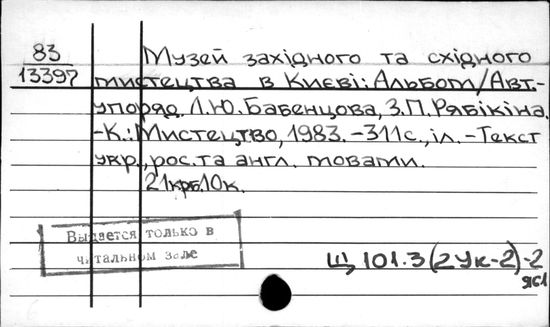 83
13397
Музей західного та східного
мистецтва в Києві: Альбом/Авт.-
упоряд. Л.Ю.Бабенцова, З.П.Рябікіна.
-К.: Мистецтво, 1983. -311с., іл. -Текст
укр., рос. та англ. мовами.
21крб.10к.
Выдается только в
читальном зале
Щ 101.3(2Ук-2)-2